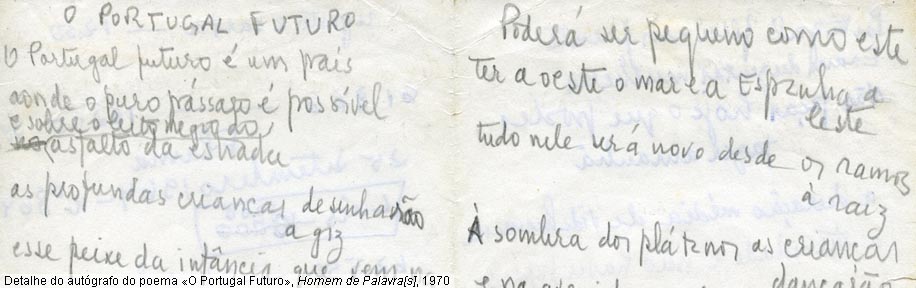 O PORTUGAL FUTURO
O Portugal futuro é um país
aonde o puro pássaro é possível
e sobre o leito negro do
asfalto da estrada
as profundas crianças desenharão
a giz
esse peixe da infância que vem n
Poderá ser pequeno como este
ter a oeste o mar e a Espanha a
leste
tudo nele será novo desde os ramos
à raiz
À sombra dos plátanos as crianças
dançarão
Detalhe do autógrafo do poema «O Portugal Futuro», Homem de Palavra[s], 1970